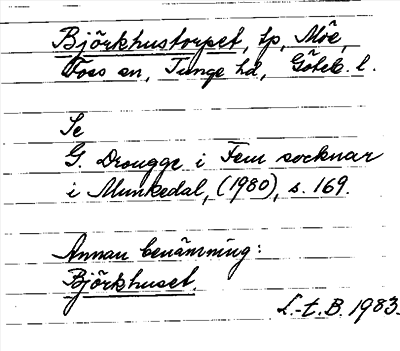 Björkhustorpet, tp, Möe,
Foss sn, Tunge hd, Göteb. l.
Se
G. Drougge i Fem socknar
i Munkedal, (1980), s. 169.
Annan benämning:
Björkhuset.
L.-t. B. 1983.